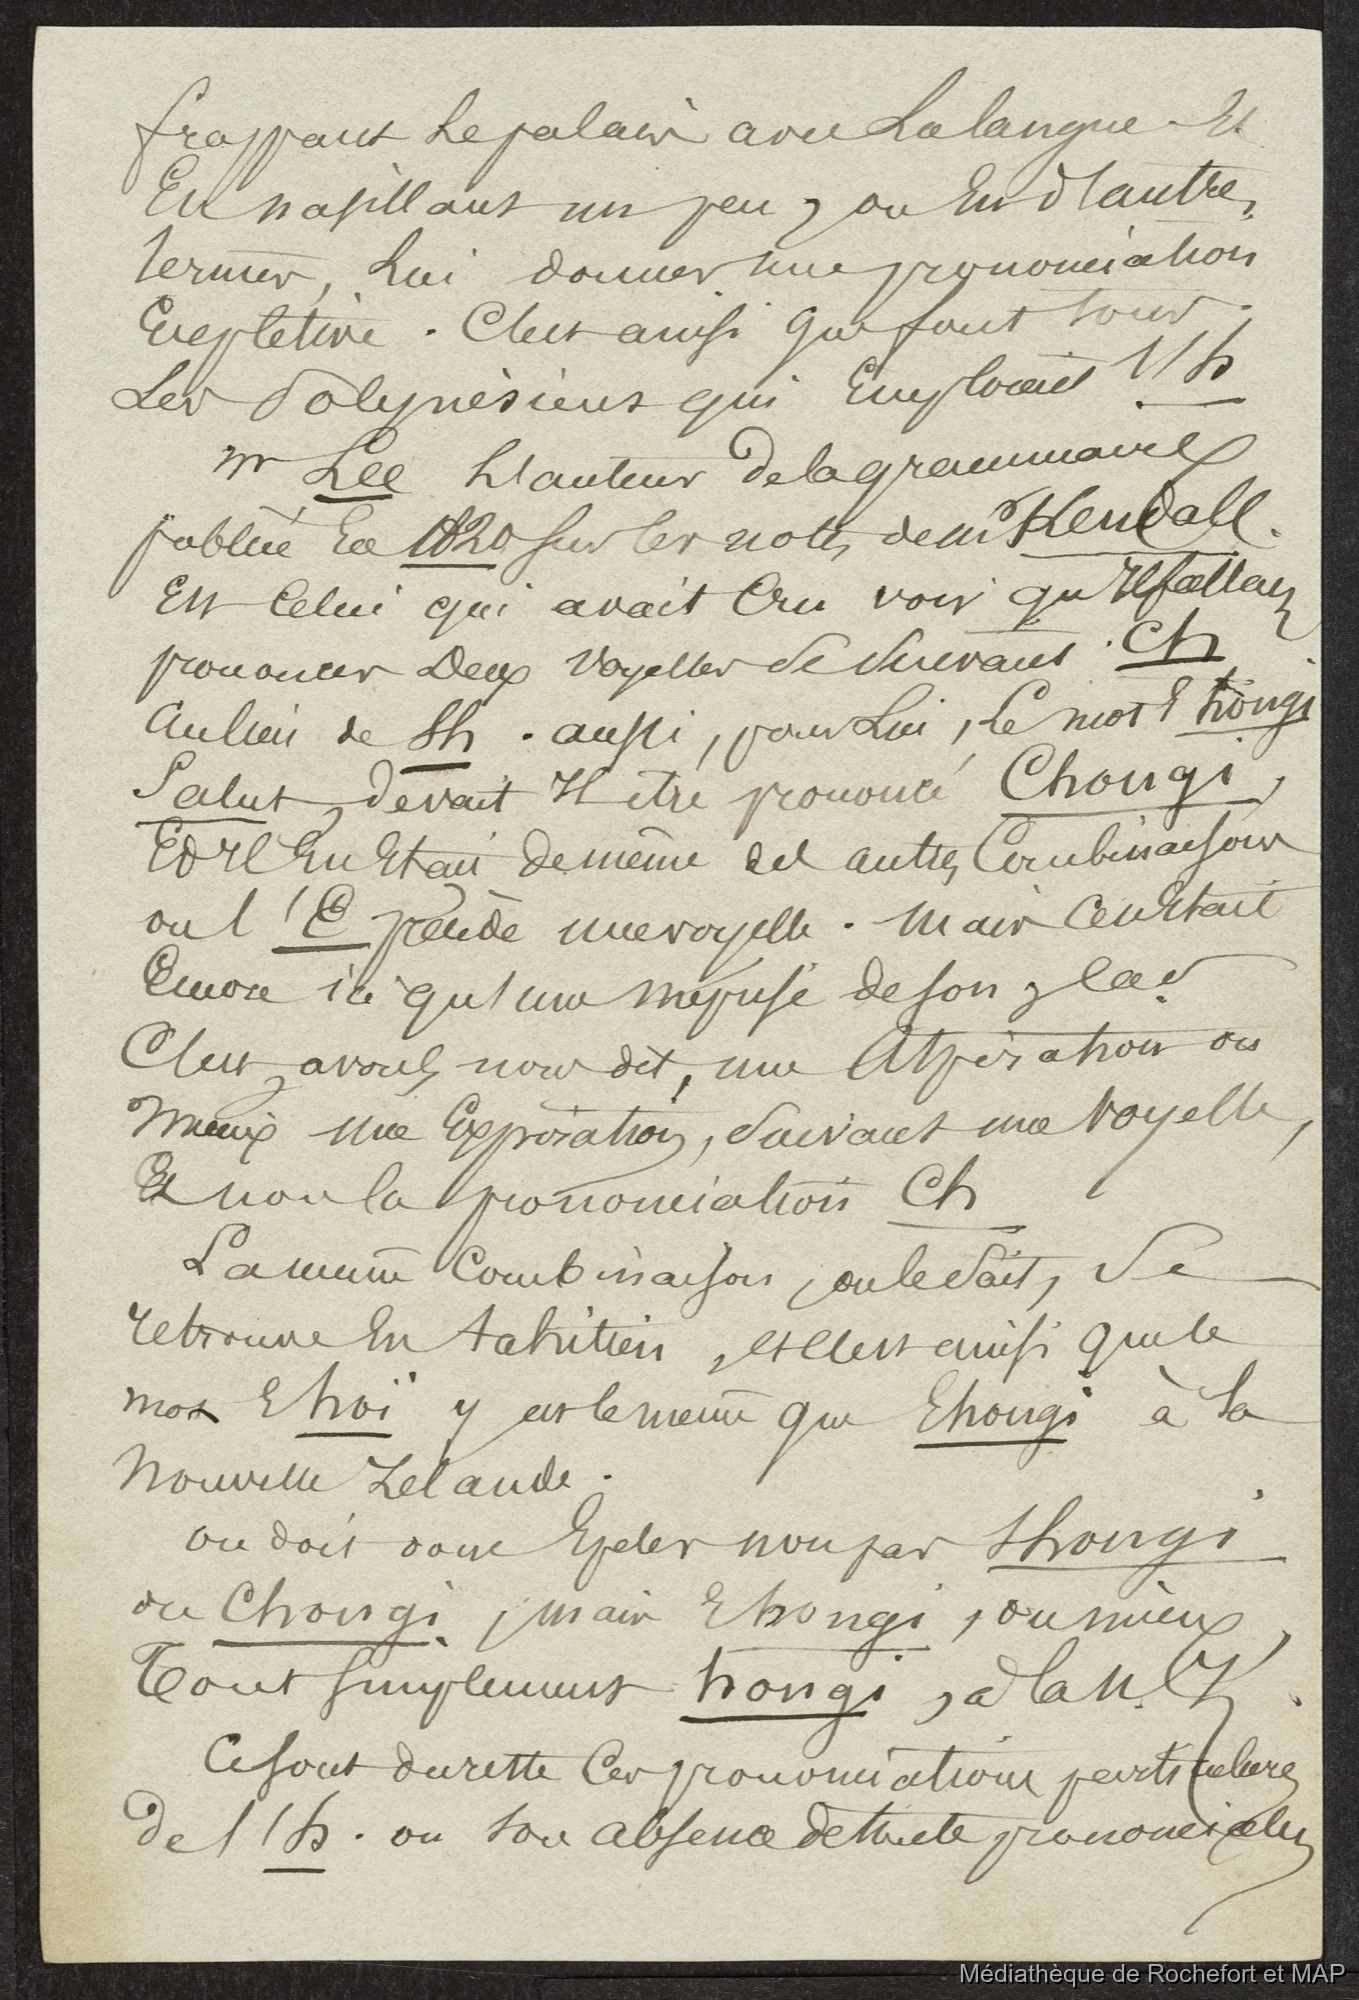 frappant le palais avec la langue et
en nasillant un peu, ou en d'autres
termes, lui donner une prononciation
explétive. C'est ainsi que font tous
les Polynésiens qui emploient l'h
mr Lee l'auteur de la grammaire
publiée en 1820 sur les notes de mr Kendall.
est celui qui avait cru voir qu'il fallait
prononcer deux voyelles se suivant. Ch
au lieu de Sh. aussi, pour lui, le mot E hongi
Salut, devait-il être prononcé Chongi,
et il en était de même des autres combinaisons
ou l'E précède une voyelle. mais ce n'était
encore ici qu'une méprise de son, glas
C'est, avons nous dit, une aspiration ou
mieux une Expiration, suivant une voyelle,
et non la prononciation Ch
La même combinaison, on le sait, se
retrouve en tahitien, et c'est ainsi que le
mot E hoï y est le même que Ehongi à la
Nouvelle Zélande.
on doit donc épeler non par Shongi
ou Chongi, mais E hongi, ou mieux,
Tout simplement hongi, à la N. Z.
Ce sont du reste ces prononciations particulières
de l'h. ou son absence de toute prononciation